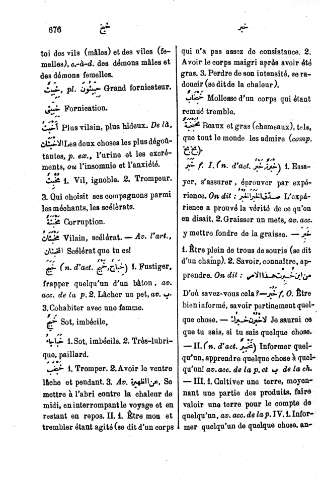 676
toi des vils (mâles) et des viles (fe-
melles), c.-à-d. des démons mâles et
des démons femelles.
pl. Grand forniсateur.
Fornication.
Plus vilain, plus hideux. De là,
Les deux choses les plus dégoû-
tantes, p. ex., l'urine et les excré-
ments, ou l'insomnie et l'anxiété.
1. Vil, ignoble. 2. Trompeur.
3. Qui choisit ses compagnons parmi
les méchants, les scélérats.
Corruption.
Vilain, scélérat. — Av. l'art.,
Scélérat que tu es!
(n. d'act.) 1. Fustiger,
frapper quelqu'un d'un bâton, av.
acc. de la p. 2. Lâcher un pet, av. ب.
3. Cohabiter avec une femme.
Sot, imbécile.
1. Sot, imbécile. 2. Très-lubri-
que, paillard.
1. Tromper. 2. Avoir le ventre
lâche et pendant. 3. Av. Se
mettre à l'abri contre la chaleur de
midi, en interrompant le voyage et en
restant en repos. II. 1. Être mou et
trembler étant agité (se dit d'un corps
qui n'a pas assez de consistance. 2.
Avoir le corps maigri après avoir été
gras. 3. Perdre de son intensité, se ra-
doucir (se dit de la chaleur).
Mollesse d'un corps qui étant
remué tremble.
Beaux et gras (chameaux), tels,
que tout le monde les admire (comp.
f. I. (n. d'act.) 1. Essa-
yer, s'assurer, éprouver par expé-
rience. On dit : L'expé-
rience a prouvé la vérité de ce qu'on
en disait. 2. Graisser un mets, av. acc.
y mettre fondre de la graisse. —
1. Être plein de trous de souris (se dit
d'un champ). 2. Savoir, connaître, ap-
prendre. On dit :
D'où savez-vous cela? — f. O. Être
bien informé, savoir pertinement quel-
que chose. — Je saurai ce
que tu sais, si tu sais quelque chose.
— II. (n. d'act.) Informer quel-
qu'un, apprendre quelque chose à quel-
qu'un, av. acc. de la p. et ب de la ch.
— III. 1. Cultiver une terre, moyen-
nant une partie des produits, faire
valoir une terre pour le compte de
quelqu'un, av. acc. de la p. IV. 1. Infor-
mer quelqu'un de quelque chose, an-